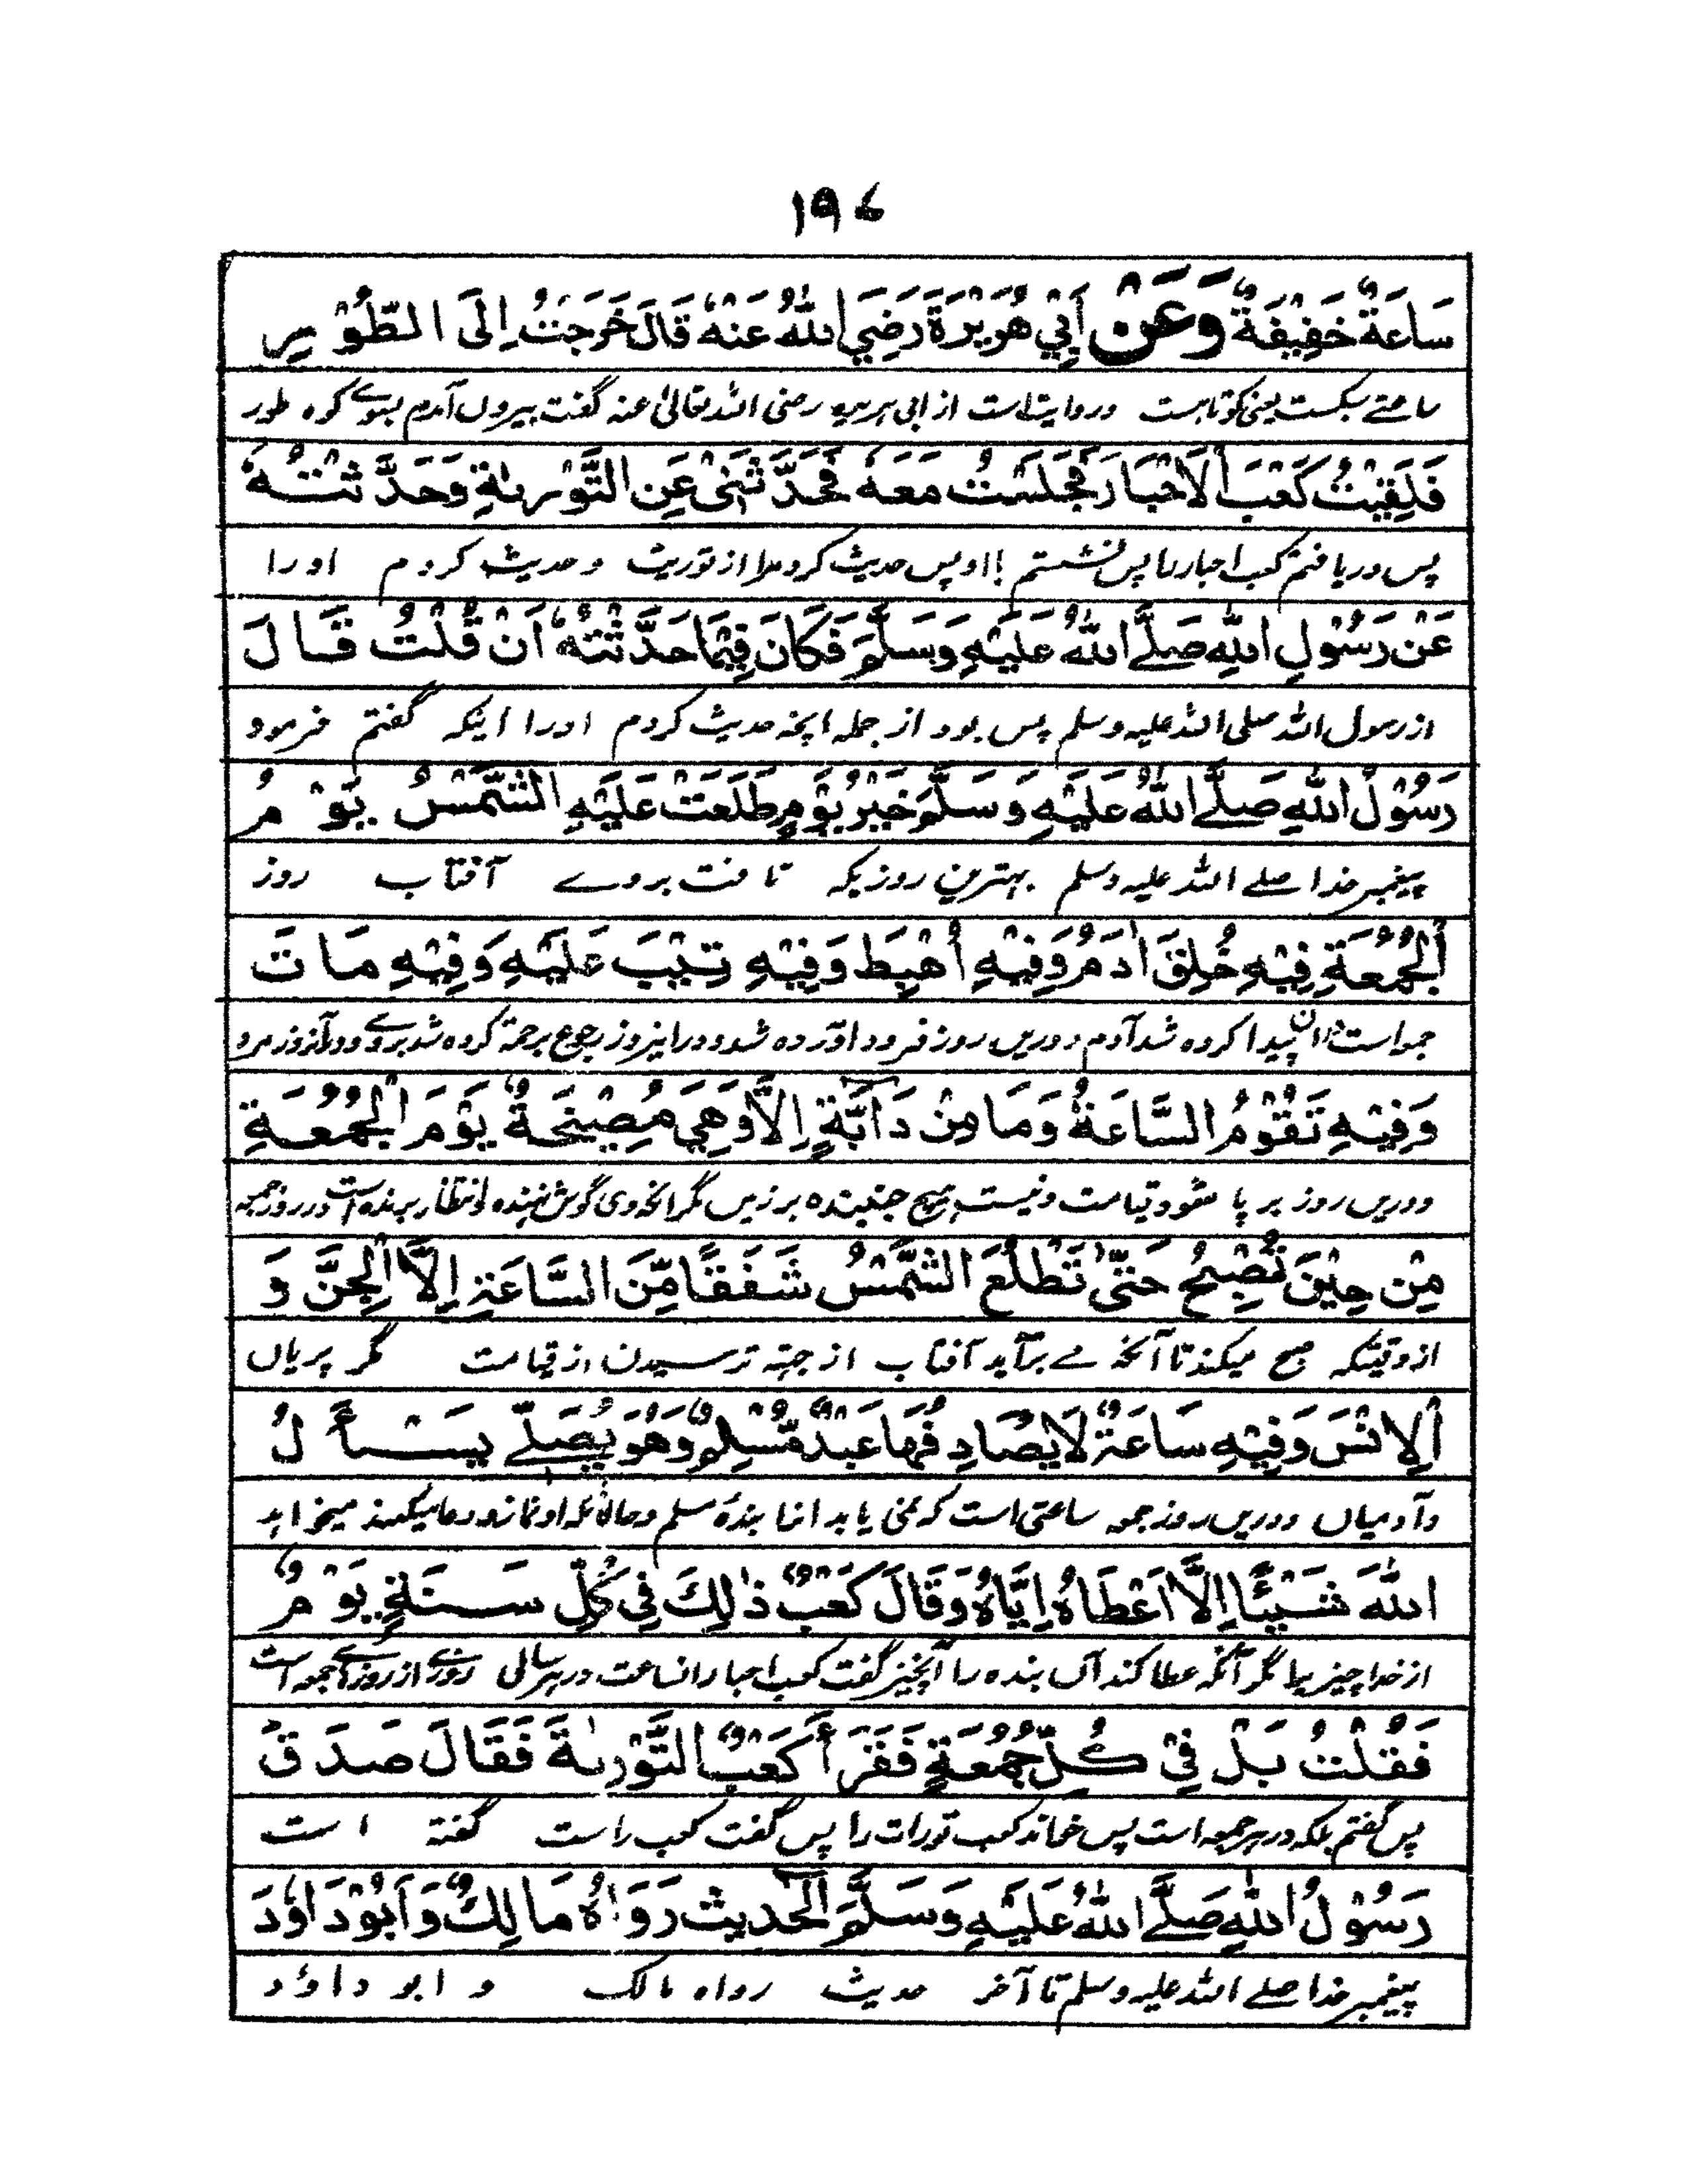 ۱۹۷
سَاعَةٌ خَفِيْفَةٌ وَعَنْ أَبِيْ هُرَيْرَةَ رَضِيَ اللهُ عَنْهُ قَالَ خَرَجْتُ إِلَى الطُّوْرِ
ساعتے سبکست یعنی کوتاہست وروایتست از ابی ہریرہ رضی اللہ تعالیٰ عنہ گفت بیروں آمدم بسوے کوہ طور
فَلَقِيْتُ كَعْبَ الْاَحْبَارِ فَجَلَسْتُ مَعَهٗ فَحَدَّثَنِيْ عَنِ التَّوْرٰىةِ وَحَدَّثْتُهٗ
پس دریافتم کعب احبار را پس نشستم بااو پس حدیث کرد مرا از توریت و حدیث کردم اورا
عَنْ رَسُوْلِ اللهِ صَلَّے اللهُ عَلَيْهِ وَسَلَّمَ فَكَانَ فِيْمَا حَدَّثْتُهٗ اَنْ قُلْتُ قَالَ
از رسول اللہ صلی اللہ علیہ وسلم پس بود از جملہ آنچہ حدیث کردم اورا اینکہ گفتم فرمود
رَسُوْلُ اللهِ صَلَّے اللهُ عَلَيْهِ وَسَلَّمَ خَيْرُ يَوْمٍ طَلَعَتْ عَلَيْهِ الشَّمْسُ يَوْمُ
پیغمبر خدا صلے اللہ علیہ وسلم بہترین روزیکہ تافت بروے آفتاب روز
الْجُمُعَةِ فِيْهِ خُلِقَ اٰدَمُ وَفِيْهِ اُهْبِطَ وَفِيْهِ تِيْبَ عَلَيْهِ وَفِيْهِ مَاتَ
پیدا کردہ شد آدم و دریں روز فرود آوردہ شد و دراینروز رجوع برحمة کردہ شد بروے و درآنروز مرد
وَفِيْهِ تَقُوْمُ السَّاعَةُ وَمَا مِنْ دَآبَّةٍ اِلَّا وَهِيَ مُصِيْخَةٌ يَوْمَ الْجُمُعَةِ
ودریں روز برپا شود قیامت ونیست ہیچ جنبندہ بر زمیں مگر آنکہ وی گوش نہندہ انتظار برندہ است در روز جمعہ
مِنْ حِيْنَ تُصْبِحُ حَتّٰى تَطْلُعَ الشَّمْسُ شَفَقًا مِّنَ السَّاعَةِ اِلَّا الْجِنَّ وَ
ازوقتیکہ صبح میکند تا آنکہ مے برآید آفتاب از جہتہ ترسیدن از قیامت مگر پریاں
الْاِنْسَ وَفِيْهِ سَاعَةٌ لَا يُصَادِفُهَا عَبْدٌ مُّسْلِمٌ وَهُوَ يُصَلِّے يَسْأَلُ
وآدمیاں ودریں روز جمعہ ساعتی است کہ نمی یابد انرا بندۂ مسلم وحالانکہ او نماز ودعا میکند میخواہد
اللهَ شَيْئًا اِلَّا اَعْطَاهُ اِيَّاهُ وَقَالَ كَعْبٌ ذٰلِكَ فِيْ كُلِّ سَنَةٍ يَوْمٌ
از خدا چیزیرا مگر آنکہ عطا کند آں بندہ را آنچیز گفت کعب احبار انساعت در ہر سالی روزے از روزہاے جمعہ است
فَقُلْتُ بَلْ فِيْ كُلِّ جُمُعَةٍ فَقَرَأَ كَعْبٌ التَّوْرٰىةَ فَقَالَ صَدَقَ
پس گفتم بلکہ در ہر جمعہ است پس خواند کعب تورات را پس گفت کعب راست گفتہ است
رَسُوْلُ اللهِ صَلَّے اللهُ عَلَيْهِ وَسَلَّمَ الْحَدِيْث رَوَاهُ مَالِكٌ وَاَبُوْ دَاوٗدَ
پیغمبر خدا صلے اللہ علیہ وسلم تا آخر حدیث رواہ مالک و ابو داؤد